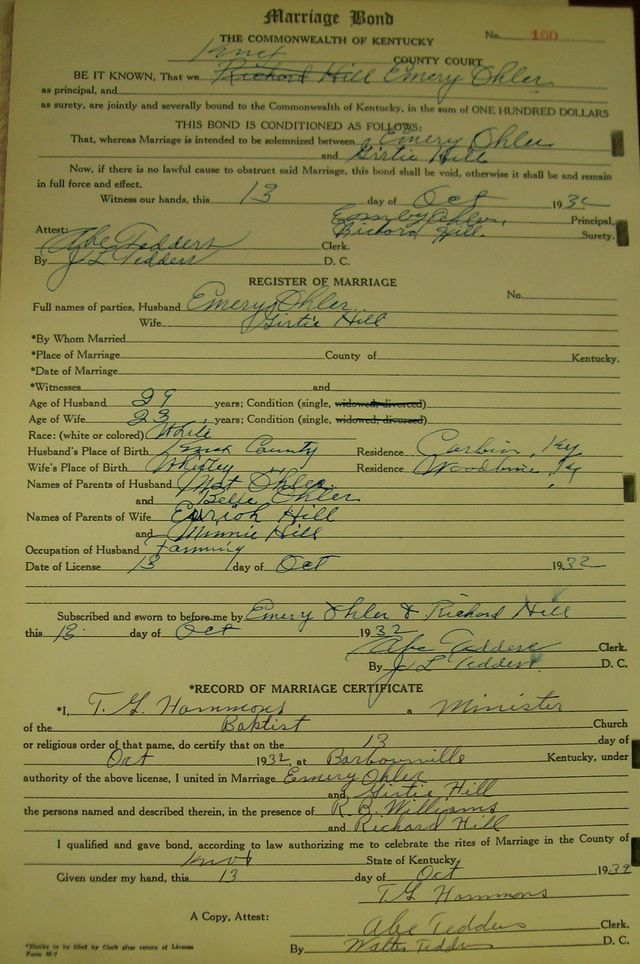 Marriage Bond
THE COMMONWEALTH OF KENTUCKY No. 100
Knox COUNTY COURT
BE IT KNOWN, That we Richard Hill Emery Ohler
as principal, and
as surety, are jointly and severally bound to the Commonwealth of Kentucky, in the sum of ONE HUNDRED DOLLARS
THIS BOND IS CONDITIONED AS FOLLOWS:
That, whereas Marriage is intended to be solemnized between Emery Ohler
and Girtie Hill
Now, if there is no lawful cause to obstruct said Marriage, this bond shall be void, otherwise it shall be and remain
in full force and effect.
Witness our hands, this 13 day of Oct 1932
Emery Ohler, Principal,
Attest: Richard Hill Surety.
Abe Tedders Clerk.
By J L Tedders D. C.
REGISTER OF MARRIAGE
Full names of parties, Husband Emery Ohler No.
Wife Girtie Hill
*By Whom Married
*Place of Marriage County of Kentucky.
*Date of Marriage
*Witnesses and
Age of Husband 29 years; Condition (single, widowed, divorced)
Age of Wife 23 years; Condition (single, widowed, divorced)
Race: (white or colored) White
Husband's Place of Birth Knox County Residence Corbin, Ky
Wife's Place of Birth Whitley Residence Woodbine, Ky
Names of Parents of Husband Mat Ohler
and Belle Ohler
Names of Parents of Wife Hill
and Minnie Hill
Occupation of Husband Farming
Date of License 13 day of Oct 1932
Subscribed and sworn to before me by Emery Ohler & Richard Hill
this 13 day of Oct 1932
Abe Tedders Clerk.
By J L Tedders D. C.
*RECORD OF MARRIAGE CERTIFICATE
*I, T. G. Hammons a Minister
of the Baptist Church
or religious order of that name, do certify that on the 13 day of
Oct 1932, at Barbourville Kentucky, under
authority of the above license, I united in Marriage Emery Ohler
and Girtie Hill
the persons named and described therein, in the presence of R. B. Williams
and Richard Hill
I qualified and gave bond, according to law authorizing me to celebrate the rites of Marriage in the County of
Knox State of Kentucky
Given under my hand, this 13 day of Oct 1932
T. G. Hammons
A Copy, Attest: Abe Tedders Clerk.
By Walter Tedders D. C.
*Blanks to be filled by Clerk after return of License
Form M-7